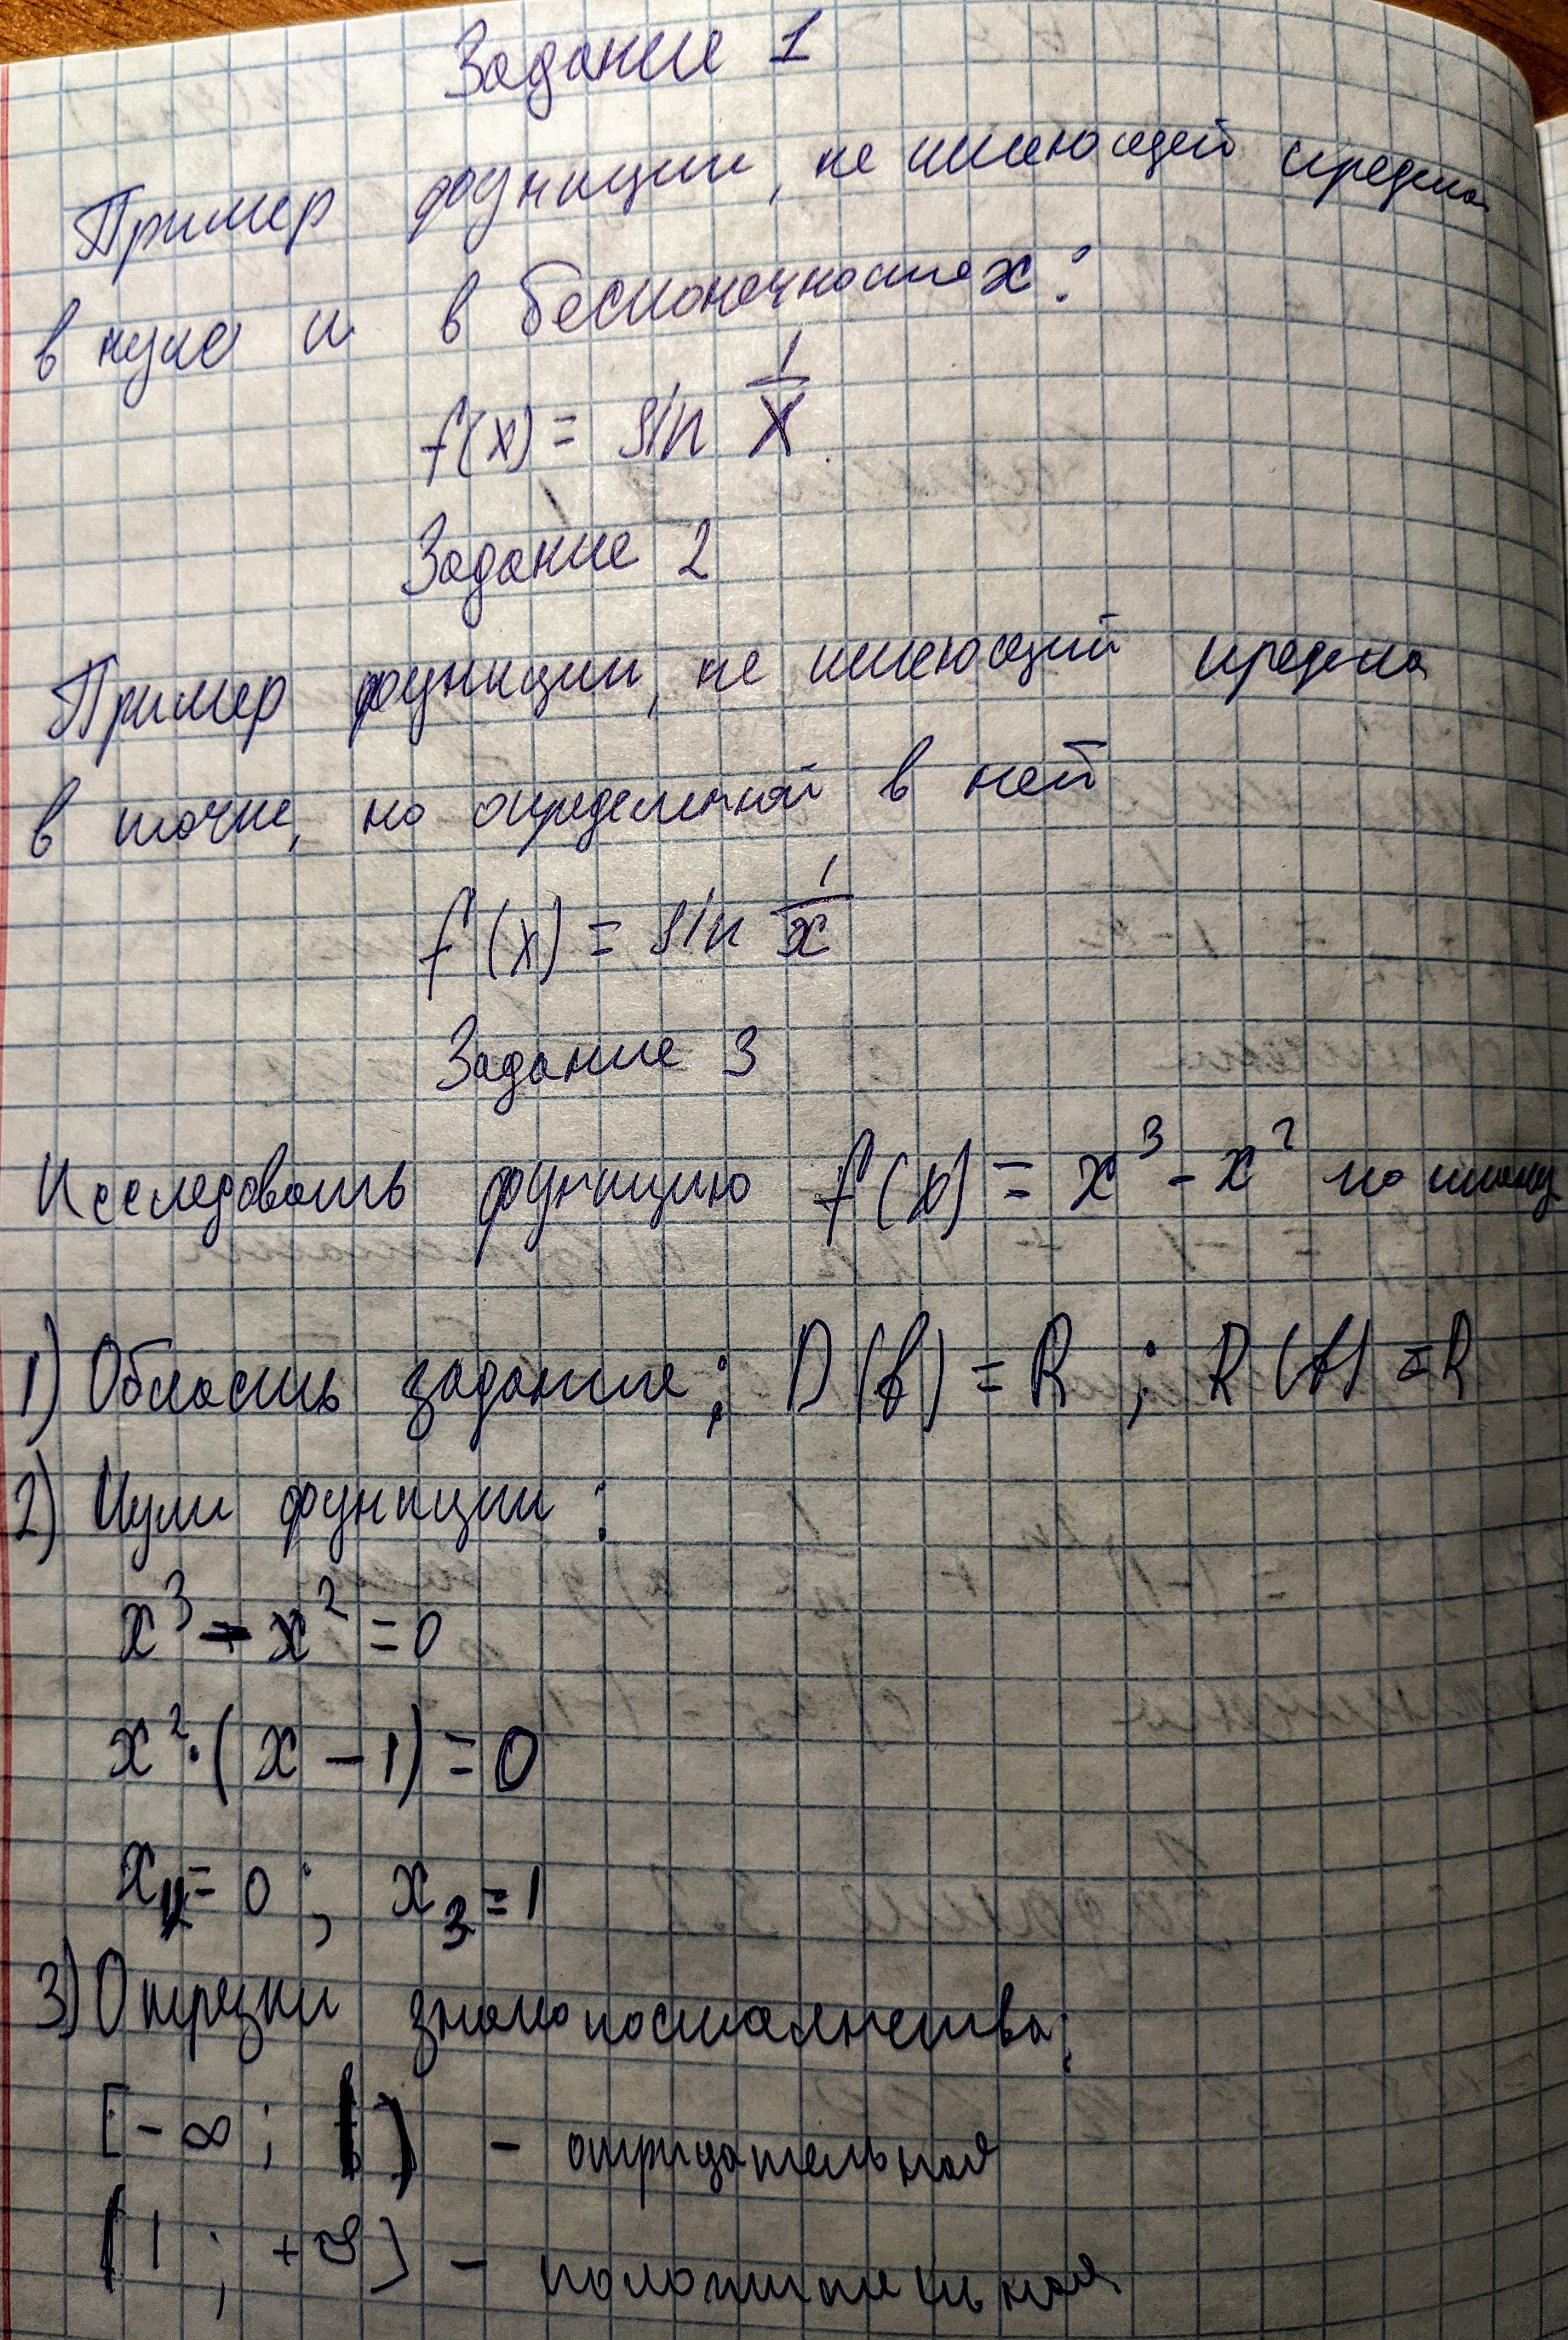 Задание 1
Пример функции, не имеющей предела
в нуле и в бесконечностях:
f(x) = sin 1/x
Задание 2
Пример функции, не имеющий предела
в точке, но определенной в ней
f(x) = sin 1/x
Задание 3
Исследовать функцию f(x) = x³ - x² по плану
1) Область задание; D(f) = R ; R(f) = R
2) Нули функции:
x³ - x² = 0
x² · (x - 1) = 0
x₁₂ = 0 ; x₃ = 1
3) Отрезки знакопостоянства:
[-∞; 1) - отрицательная
(1 ; +∞] - положительная